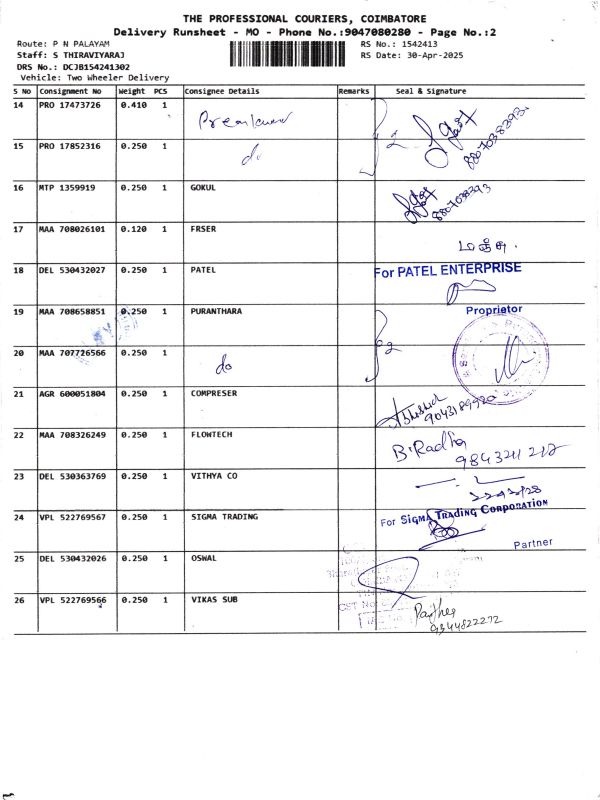 THE PROFESSIONAL COURIERS, COIMBATORE
Delivery Runsheet - MO - Phone No.:9047080280 - Page No.:2
Route: P N PALAYAM
RS No.: 1542413
Staff: S THIRAVIYARAJ
RS Date: 30-Apr-2025
DRS No.: DCJB154241302
Vehicle: Two Wheeler Delivery
S No Consignment No Weight PCS Consignee Details Remarks Seal & Signature
14 PRO 17473726 0.410 1
15 PRO 17852316 0.250 1 do
2
16 MTP 1359919 0.250 1 GOKUL
17 MAA 708026101 0.120 1 FRSER மஞ்சு.
18 DEL 530432027 0.250 1 PATEL For PATEL ENTERPRISE
Proprietor
19 MAA 708658851 0.250 1 PURANTHARA
20 MAA 707726566 0.250 1 do
2
21 AGR 600051804 0.250 1 COMPRESER Abhishek
9043189920
22 MAA 708326249 0.250 1 FLOWTECH B.Radha
9843211212
23 DEL 530363769 0.250 1 VITHYA CO
24 VPL 522769567 0.250 1 SIGMA TRADING For SIGMA TRADING CORPORATION
Partner
25 DEL 530432026 0.250 1 OSWAL
26 VPL 522769566 0.250 1 VIKAS SUB
9344822272